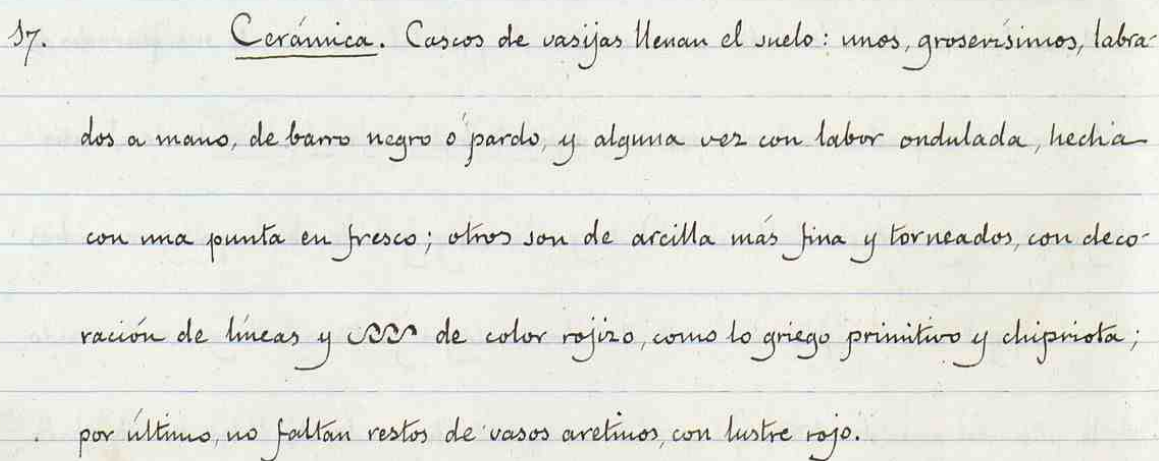 17. Cerámica. Cascos de vasijas llenan el suelo: unos, groserísimos, labra-
dos a mano, de barro negro o pardo, y alguna vez con labor ondulada, hecha
con una punta en fresco; otros son de arcilla más fina y torneados, con deco-
ración de líneas y de color rojizo, como lo griego primitivo y chipriota;
por último, no faltan restos de vasos aretinos, con lustre rojo.